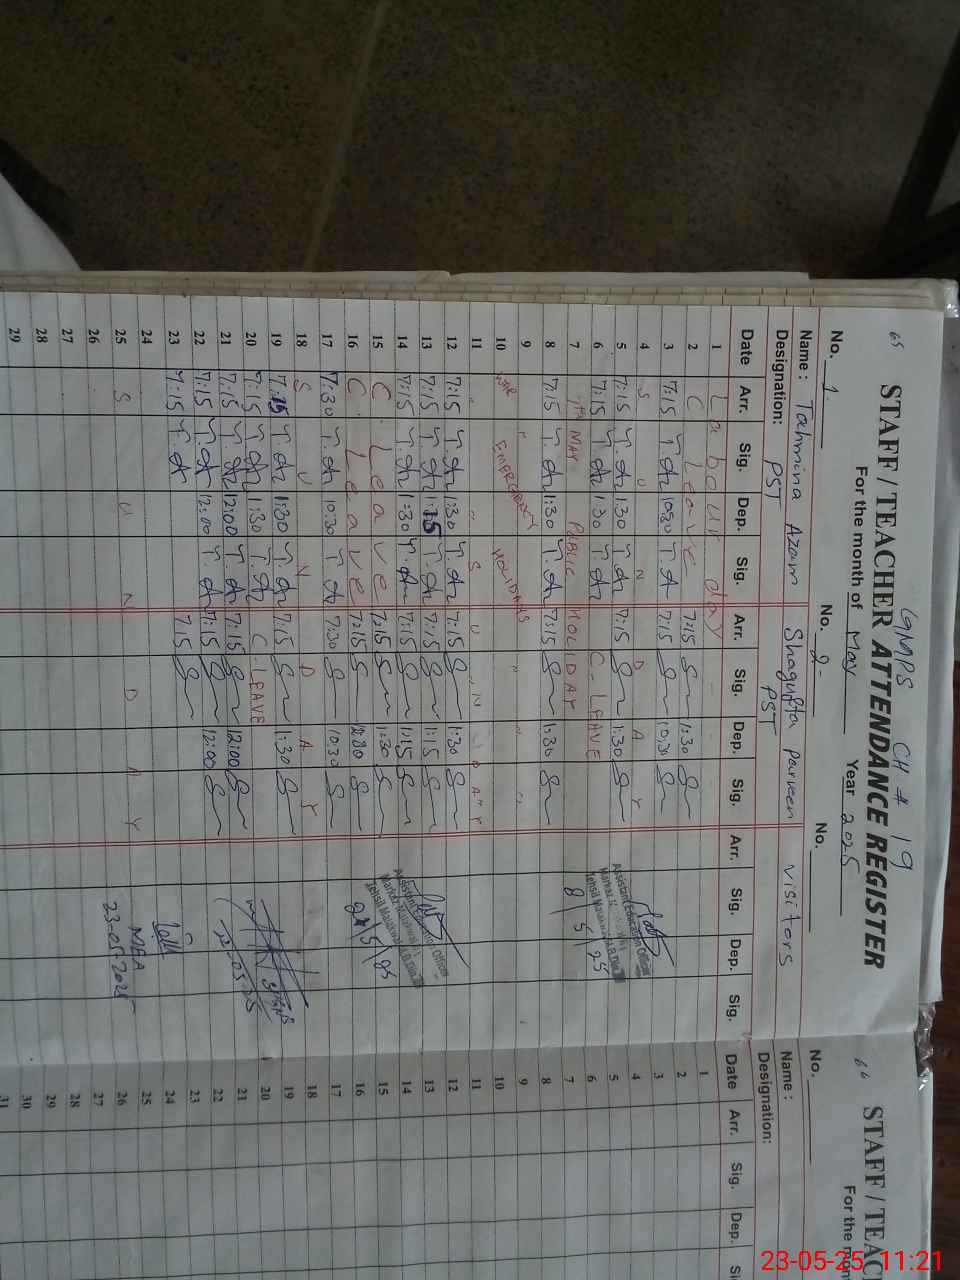 65
GMPS CH # 19
STAFF / TEACHER ATTENDANCE REGISTER
For the month of May Year 2025
No. 1. No. 2- No.
Name : Tahmina Azam Shagufta Parveen visitors
Designation: PST PST
Date Arr. Sig. Dep. Sig. Arr. Sig. Dep. Sig. Arr. Sig. Dep. Sig.
1 Labour day
2 C Leave 7:15 1:30
3 7:15 10:30 7:15 10:30
4 S U N D A Y
5 7:15 1:30 7:15 1:30
6 7:15 1:30 C-LEAVE
7 7th MAY PUBLIC HOLIDAY
8 7:15 1:30 7:15 1:30
9 " " "
10 WAR EMERGENCY HOLIDAYS
11 " " S U N D A Y
12 7:15 1:30 7:15 1:30
13 7:15 1:15 7:15 1:15
14 7:15 1:30 7:15 1:15
15 C. Leave 7:15 1:30
16 C. Leave 7:15
17 7:30 10:30 7:30 10:30
18 S U N D A Y
19 7:15 1:30 7:15 1:30
20 7:15 1:30 C-LEAVE
21 7:15 12:00 7:15 12:00
22 7:15 12:00 7:15 12:00
23 7:15 7:15
24
25 S U N D A Y
26
27
28
29
Assistant Education Officer
8/5/25
Assistant Education Officer
Markaz Malakwal
Tehsil Malakwal M.B.Din
MEA
23-05-2025
66
STAFF / TEAC
For the mon
No.
Name :
Designation:
Date Arr. Sig. Dep. Si
1
2
3
4
5
6
7
8
9
10
11
12
13
14
15
16
17
18
19
20
21
22
23
24
25
26
27
28
29
30
31
23-05-25 11:21